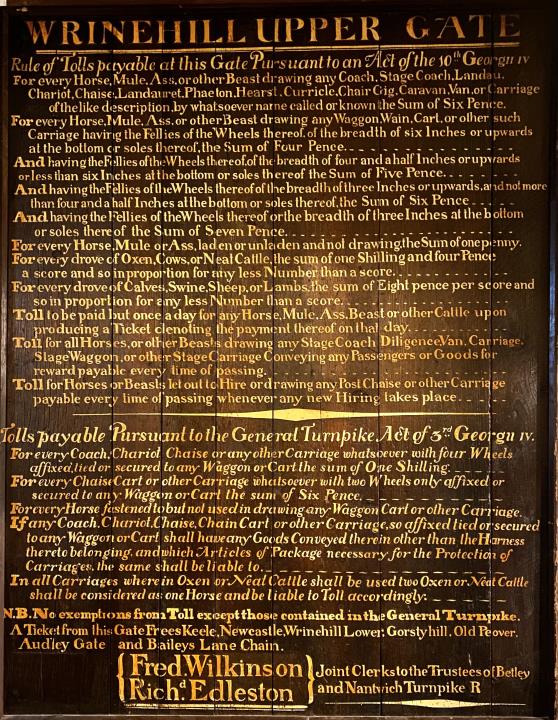 WRINEHILL UPPER GATE
Rule of Tolls payable at this Gate Pursuant to an Act of the 10th Georgii IV
For every Horse, Mule, Ass, or other Beast drawing any Coach, Stage Coach, Landau,
Chariot, Chaise, Landauret, Phaeton, Hearst, Curricle, Chair Gig, Caravan, Van, or Carriage
of the like description, by whatsoever name called or known the Sum of Six Pence.
For every Horse, Mule, Ass, or other Beast drawing any Waggon, Wain, Cart, or other such
Carriage having the Fellies of the Wheels thereof, of the breadth of six Inches or upwards
at the bottom or soles thereof, the Sum of Four Pence.
And having the Fellies of the Wheels thereof of the breadth of four and a half Inches or upwards
or less than six Inches at the bottom or soles thereof the Sum of Five Pence.
And having the Fellies of the Wheels thereof of the breadth of three Inches or upwards, and not more
than four and a half Inches at the bottom or soles thereof, the Sum of Six Pence
And having the Fellies of the Wheels thereof or the breadth of three Inches at the bottom
or soles thereof the Sum of Seven Pence.
For every Horse, Mule or Ass, laden or unladen and not drawing, the Sum of one penny.
For every drove of Oxen, Cows, or Neat Cattle, the sum of one Shilling and four Pence
a score and so in proportion for any less Number than a score.
For every drove of Calves, Swine, Sheep, or Lambs, the sum of Eight pence per score and
so in proportion for any less Number than a score.
Toll to be paid but once a day for any Horse, Mule, Ass, Beast or other Cattle upon
producing a Ticket denoting the payment thereof on that day.
Toll for all Horses, or other Beasts drawing any Stage Coach Diligence Van, Carriage,
Stage Waggon, or other Stage Carriage Conveying any Passengers or Goods for
reward payable every time of passing.
Toll for Horses or Beasts let out to Hire or drawing any Post Chaise or other Carriage
payable every time of passing whenever any new Hiring takes place.
Tolls payable Pursuant to the General Turnpike, Act of 3rd Georgii IV.
For every Coach, Chariot Chaise or any other Carriage whatsoever with four Wheels
affixed, tied or secured to any Waggon or Cart the sum of One Shilling.
For every Chaise Cart or other Carriage whatsoever with two Wheels only affixed or
secured to any Waggon or Cart the sum of Six Pence.
For every Horse fastened to but not used in drawing any Waggon Cart or other Carriage.
If any Coach, Chariot, Chaise, Chain Cart or other Carriage, so affixed tied or secured
to any Waggon or Cart shall have any Goods Conveyed therein other than the Harness
thereto belonging, and which Articles of Package necessary for the Protection of
Carriages, the same shall be liable to.
In all Carriages wherein Oxen or Neat Cattle shall be used two Oxen or Neat Cattle
shall be considered as one Horse and be liable to Toll accordingly.
N.B. No exemptions from Toll except those contained in the General Turnpike.
A Ticket from this Gate Frees Keele, Newcastle, Wrinehill Lower, Gorstyhill, Old Peover,
Audley Gate and Baileys Lane Chain.
Fred Wilkinson
Richd Edleston
Joint Clerks to the Trustees of Betley
and Nantwich Turnpike R